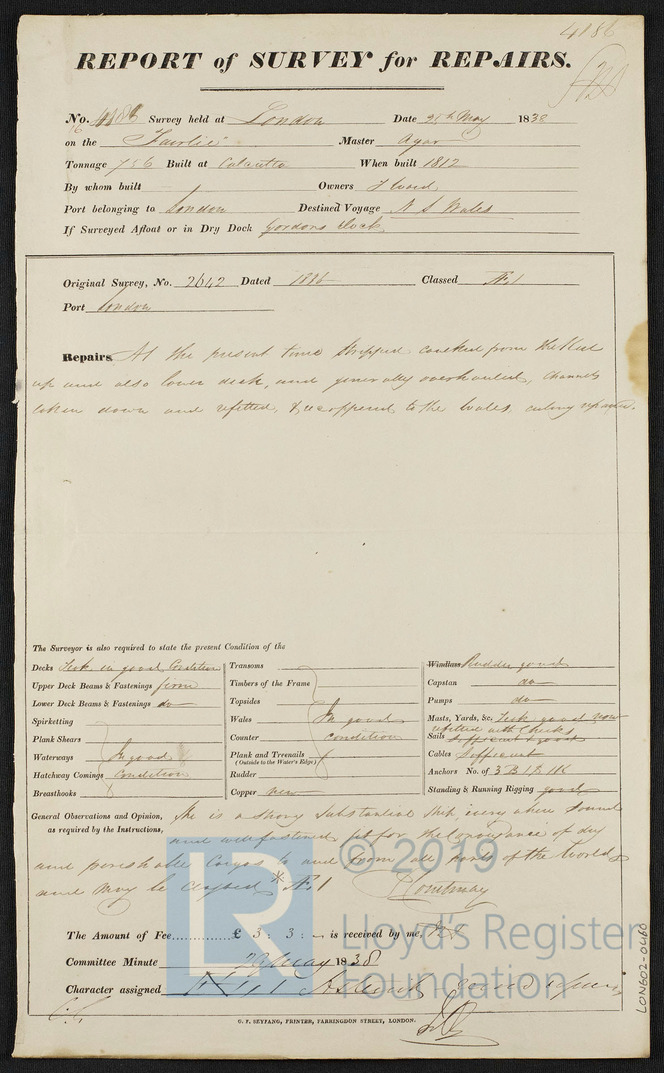 4186
REPORT of SURVEY for REPAIRS.
No. 4186 Survey held at London Date 25th May 1838
16
on the "Fairlie" Master Agar
Tonnage 756 Built at Calcutta When built 1812
By whom built Owners F Ward
Port belonging to London Destined Voyage N S Wales
If Surveyed Afloat or in Dry Dock Gordons Dock
Original Survey, No. 2642 Dated 1836 Classed Æ 1
Port London
Repairs. At the present time stripped caulked from the Keel
up and also lower deck, and generally overhauled, Channels
taken down and refitted, & recoppered to the Wales,
The Surveyor is also required to state the present Condition of the
Decks Teak in good Condition
Upper Deck Beams & Fastenings firm
Lower Deck Beams & Fastenings do
Spirketting
Plank Shears
Waterways In good
Hatchway Comings Condition
Breasthooks
Transoms
Timbers of the Frame
Topsides
Wales In good
Counter condition
Plank and Treenails
(Outside to the Water's Edge)
Rudder
Copper new
Windlass Rudder good
Capstan do
Pumps do
Masts, Yards, &c. Teak good now
refitted with Cheeks
Sails sufficient & good
Cables Sufficient
Anchors No. of 3 B 1 S 1 K
Standing & Running Rigging good
General Observations and Opinion, She is a strong substantial Ship, every where sound
as required by the Instructions, and well fastened, fit for the conveyance of dry
and perishable Cargos to and from all parts of the World
and may be Classed * Æ 1 Courtenay
The Amount of Fee............£ 3 : 3 : - is received by me,
Committee Minute 29 May 1838
Character assigned Æ 1
G. F. SEYFANG, PRINTER, FARRINGDON STREET, LONDON.
LON602-0460
© 2019
LR
Lloyd's Register
Foundation